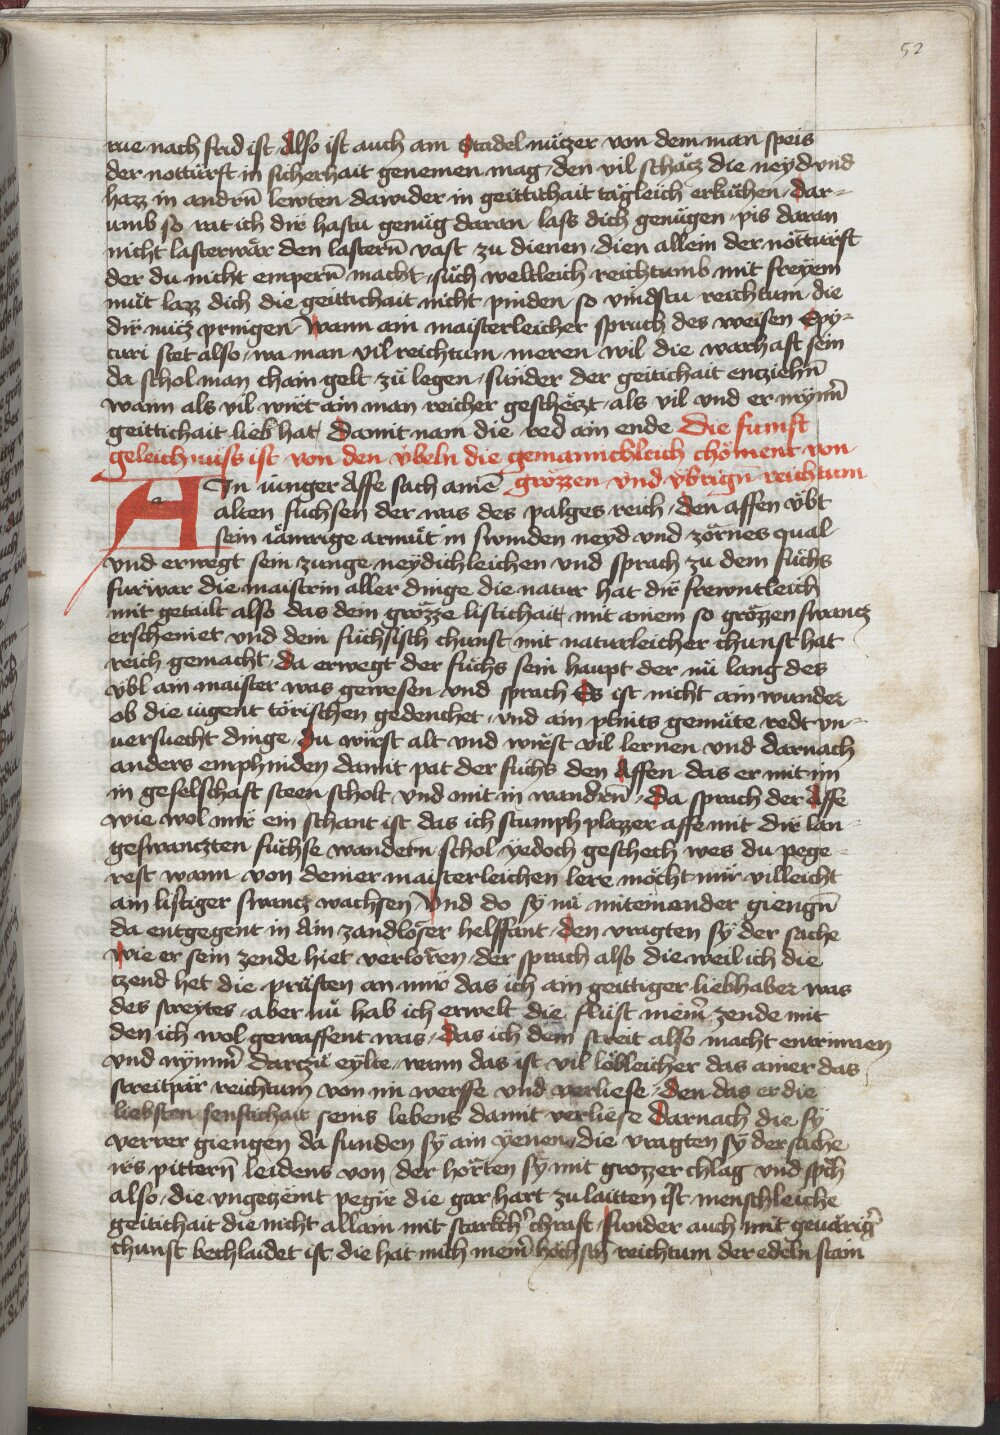 52
rue nach frid ist Also ist auch am Stadel nüczer von dem man speis
der notturft in sicherhait genemen mag den vil schäcz die neyd vnd
hazz in andern̄ lewten dawider in geittichait tägleich erkuchen Dar-
umb so rat ich dir hastu genüg daran lass dich genügen vis daran
nicht lasterwär den lastern̄ vast zu dienen dien allein der nötturft
der du nicht empern̄ macht such weltleich reichtumb mit freyem
müt lazz dich die geittichait nicht pinden so vindstu reichtum die
dir nücz pringen Wann ain maisterleicher spruch des weisen Epy-
curi stet also wa man vil reichtum meren wil die warhaft sein
da schol man chain gelt zü legen sunder der geitichait encziehn̄
wann als vil wirt ain man reicher geschëczt als vil vnd er mynn̄
geittichait lieb hat Damit nam die red ain ende Die fumft
geleichnuss ist von den vbeln die gemainichleich chöment von
grözzen vnd vbrign̄ reichtum
AIn iunger Affe sach ainē
alten fuchsen der was des palges reich Den affen vbt
sein iämrige armüt in swinden neyd vnd zörnes qual
vnd erwegt sein zunge neydichleichen vnd sprach zu dem fuchs
furwar die maistrin aller dinge die natur hat dir frewntleich
mit getailt also das dein grözze listichait mit ainem so grözzen swancz
erscheinet vnd dein füchsisch chunst mit naturleicher chunst hat
reich gemacht Da erwegt der fuchs sein haupt der nü lang des
vbl ain maister was gewesen vnd sprach Es ist nicht ain wunder
ob die iugent törischen gedenchet vnd ain plints gemüte redt vn-
uersuecht dinge Du wirst alt vnd wirst vil lernen vnd darnach
anders emphinden damit pat der fuchs den Affen das er mit im
in geselschaft steen scholt vnd mit in wandern̄ Da sprach der Affe
wie wol mir ein schant ist das ich stumph plazzer affe mit dir lan-
geswanczten fuchse wandern schol yedoch geschech wes du pege-
rest wann von deiner maisterleichen lere möcht mir villeicht
ain listiger swancz wachsen Vnd do sy nü miteinander giengn̄
da entgegent in Ain zandlöser helffant Den vragten sy der sache
Wie er sein zende hiet verloren der sprach also die weil ich die
czend het die prüsten an mir das ich ain geittiger liebhaber was
des streytes aber nü hab ich erwelt die flust mein̄ zende mit
den ich wol gewaffent was Das ich dem streit also macht entrinnen
vnd nymm̄ darczu eylte wann das ist vil löbleicher das ainer das
streitpär reichtum von im werffe vnd verliese Den das er die
liebsten senftichait seins lebens damit verliese Darnach die sy
verrer giengen da funden sy ain yenen die vragten sy der sache
irs pittern̄ leidens von der hörten sy mit grozzer chlag vnd sp̄ch
also die vngezëmt pegir die gar hart zu laitten ist menschleiche
geitichait die nicht allain mit starkch̄ chraft Sunder auch mit geuäriḡ
chunst bechlaidet ist die hat mich mein̄ höchsten reichtum der edeln stain